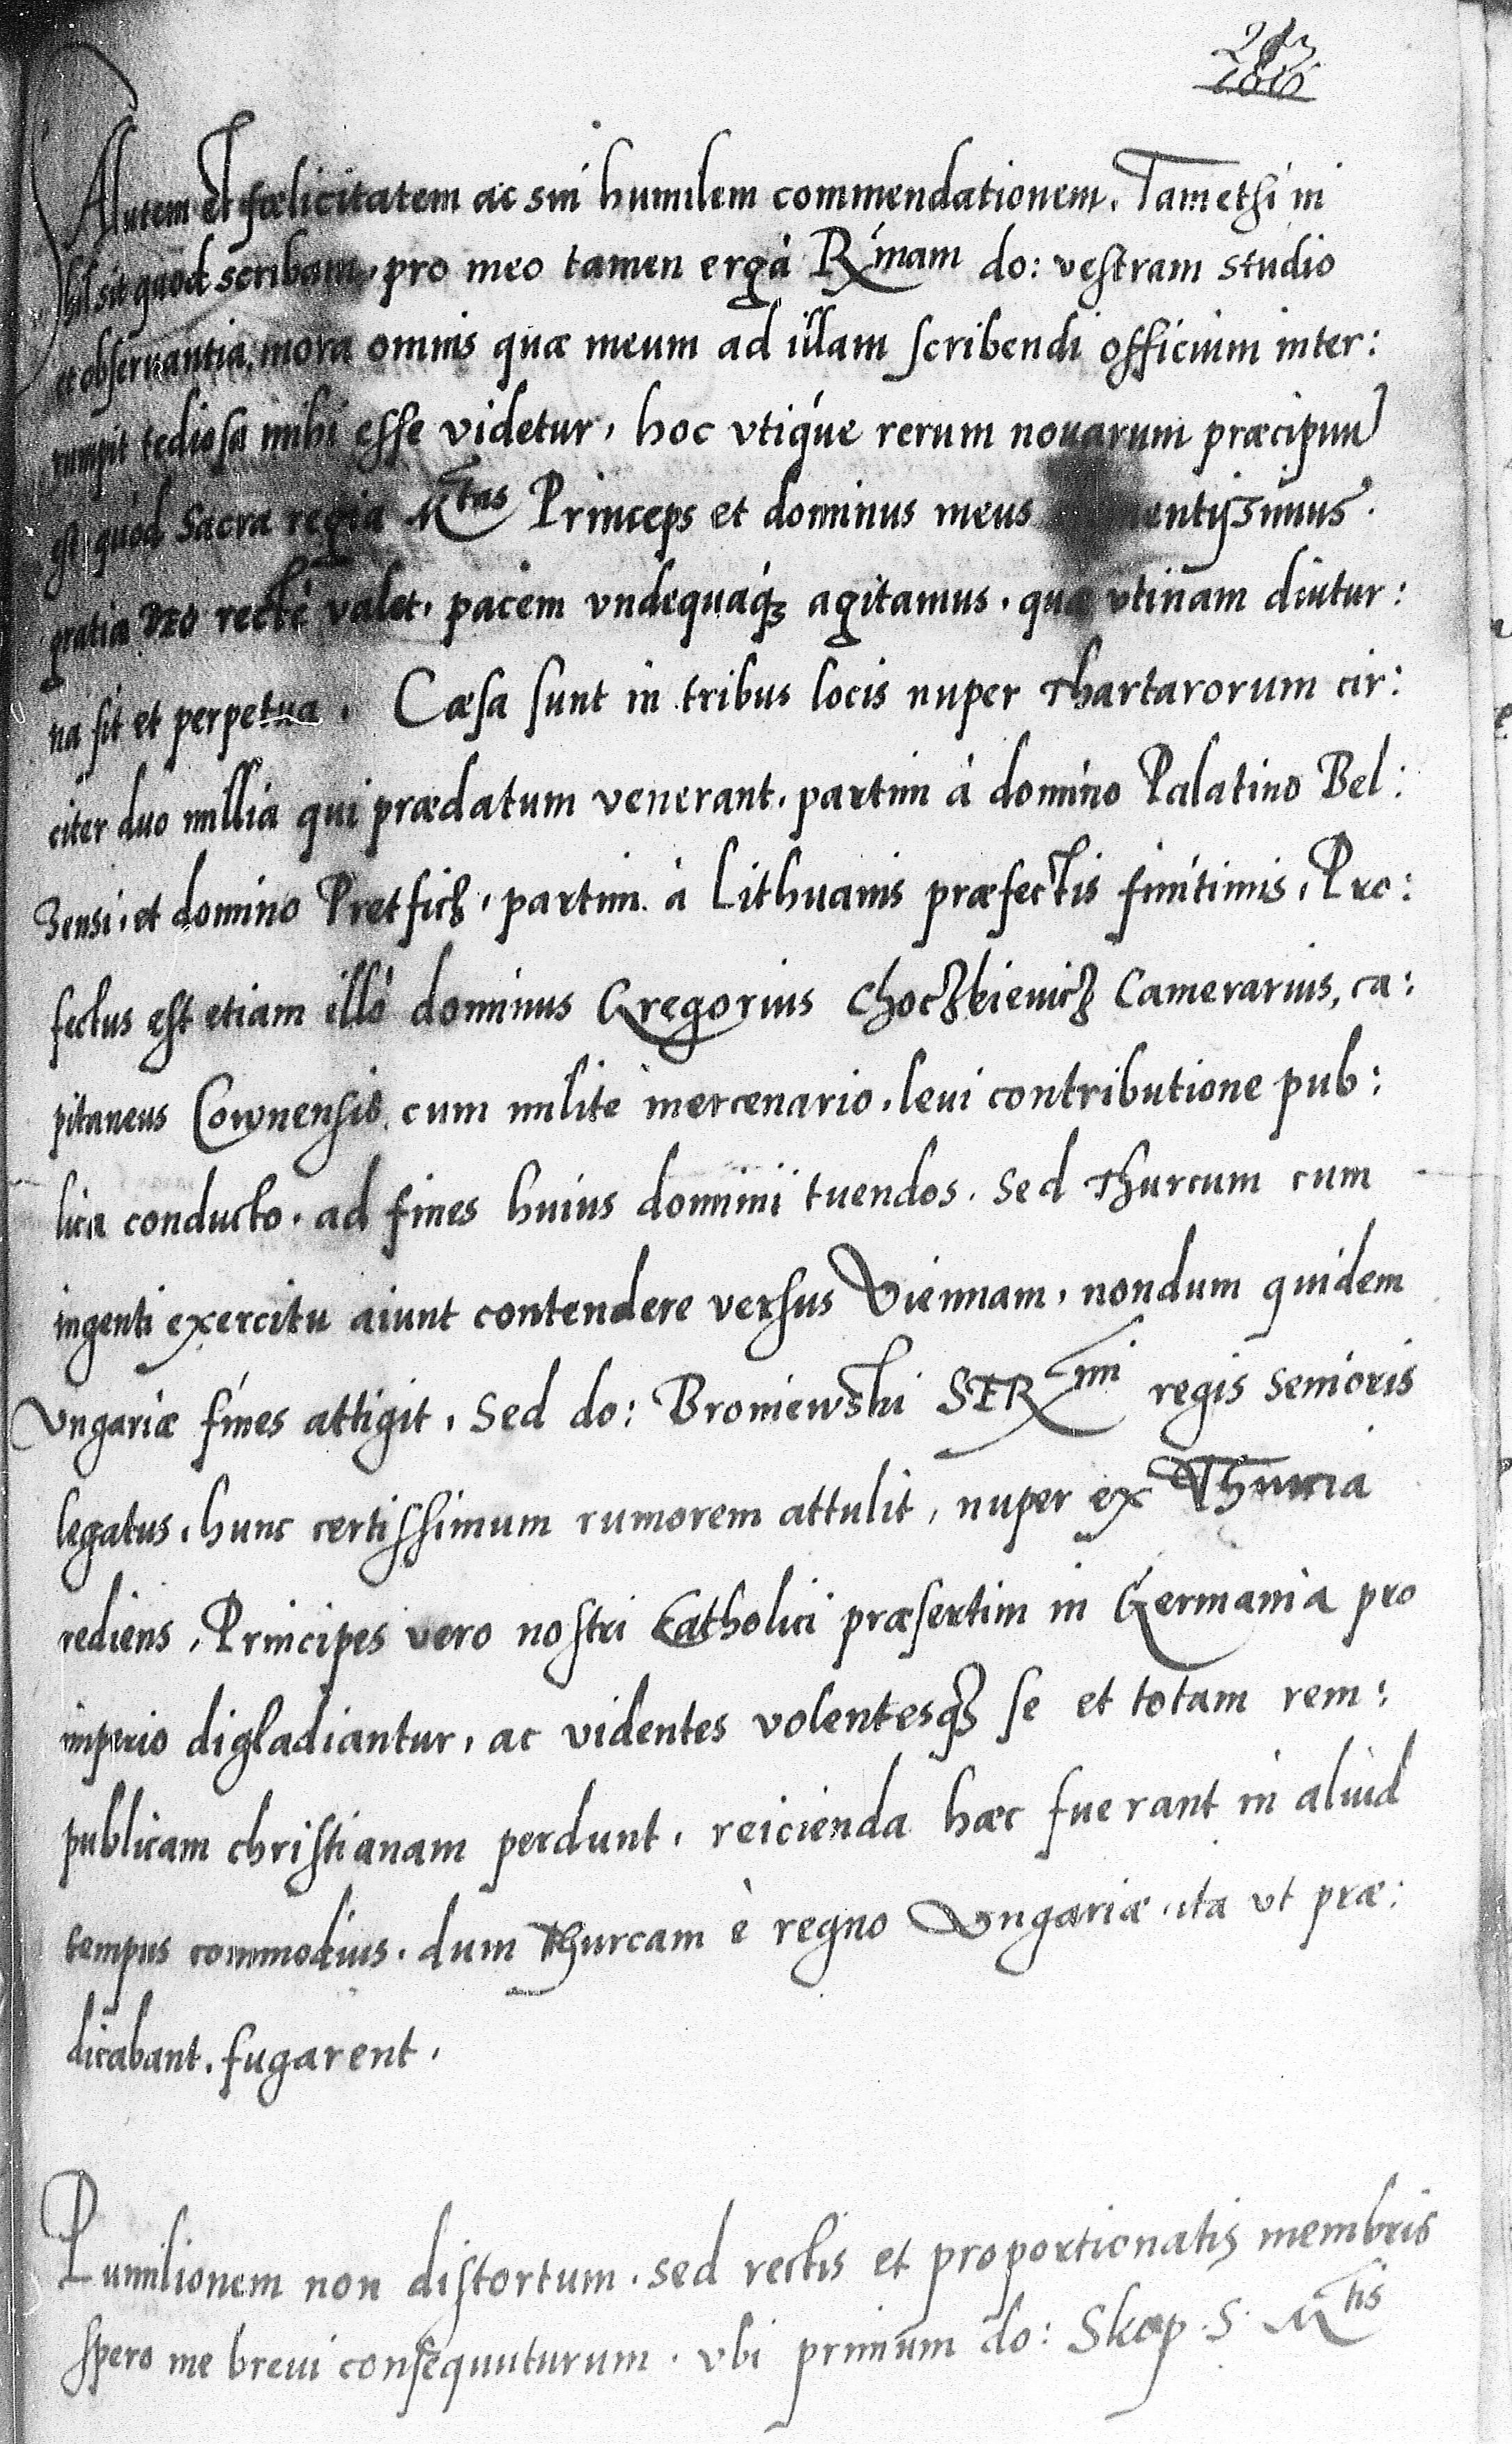 Salutem et foelicitatem ac sui humilem commendationem. Tamethsi ni
hil sit quod scribam, pro meo tamen ergà Rmam do: vestram studio
et obseruantia, mora omnis quæ meum ad illam scribendi officium inter:
rumpit tediosa mihi esse videtur, hoc vtiq́ue rerum nouarum præcipuu
est quód Sacra regia Mtas Princeps et dominus meus
gratia DEO recté valet, pacem vndequáq; agitamus, quæ vtinam diutur:
na sit et perpetua. Cæsa sunt in tribus locis nuper Thartarorum cir:
citer duo millia qui prædatum venerant, partim à domino Palatino Bel:
zensi, et domino Pretficz, partim à Lithuanis præfectis finitimis, Pro:
fectus est etiam illó dominus Gregorius Choczkieuicz Camerarius, ca:
pitaneus Cownensis, cum milite mercenario, leui contributione pub:
lica conducto, ad fines huius dominii tuendos. Sed Thurcum cum
ingenti exercitu aiunt contendere versus Viennam, nondum quidem
Vngariæ fines attigit, Sed do: Broniewski SERmi regis senioris
legatus, hunc certissimum rumorem attulit, nuper ex Thurcia
rediens, Principes vero nostri Catholici præsertim in Germania pro
imperio digladiantur, ac videntes volentesq; se et totam rem:
publicam christianam perdunt, reicienda hæc fuerant in aliud
tempus commodius, dum Thurcam è regno Vngariæ, ita vt præ:
dicabant, fugarent.
Pumilionem non distortum, sed rectis et proportionatis membris
spero me breui consequuturum, vbi primum do: Skop S. Mtis